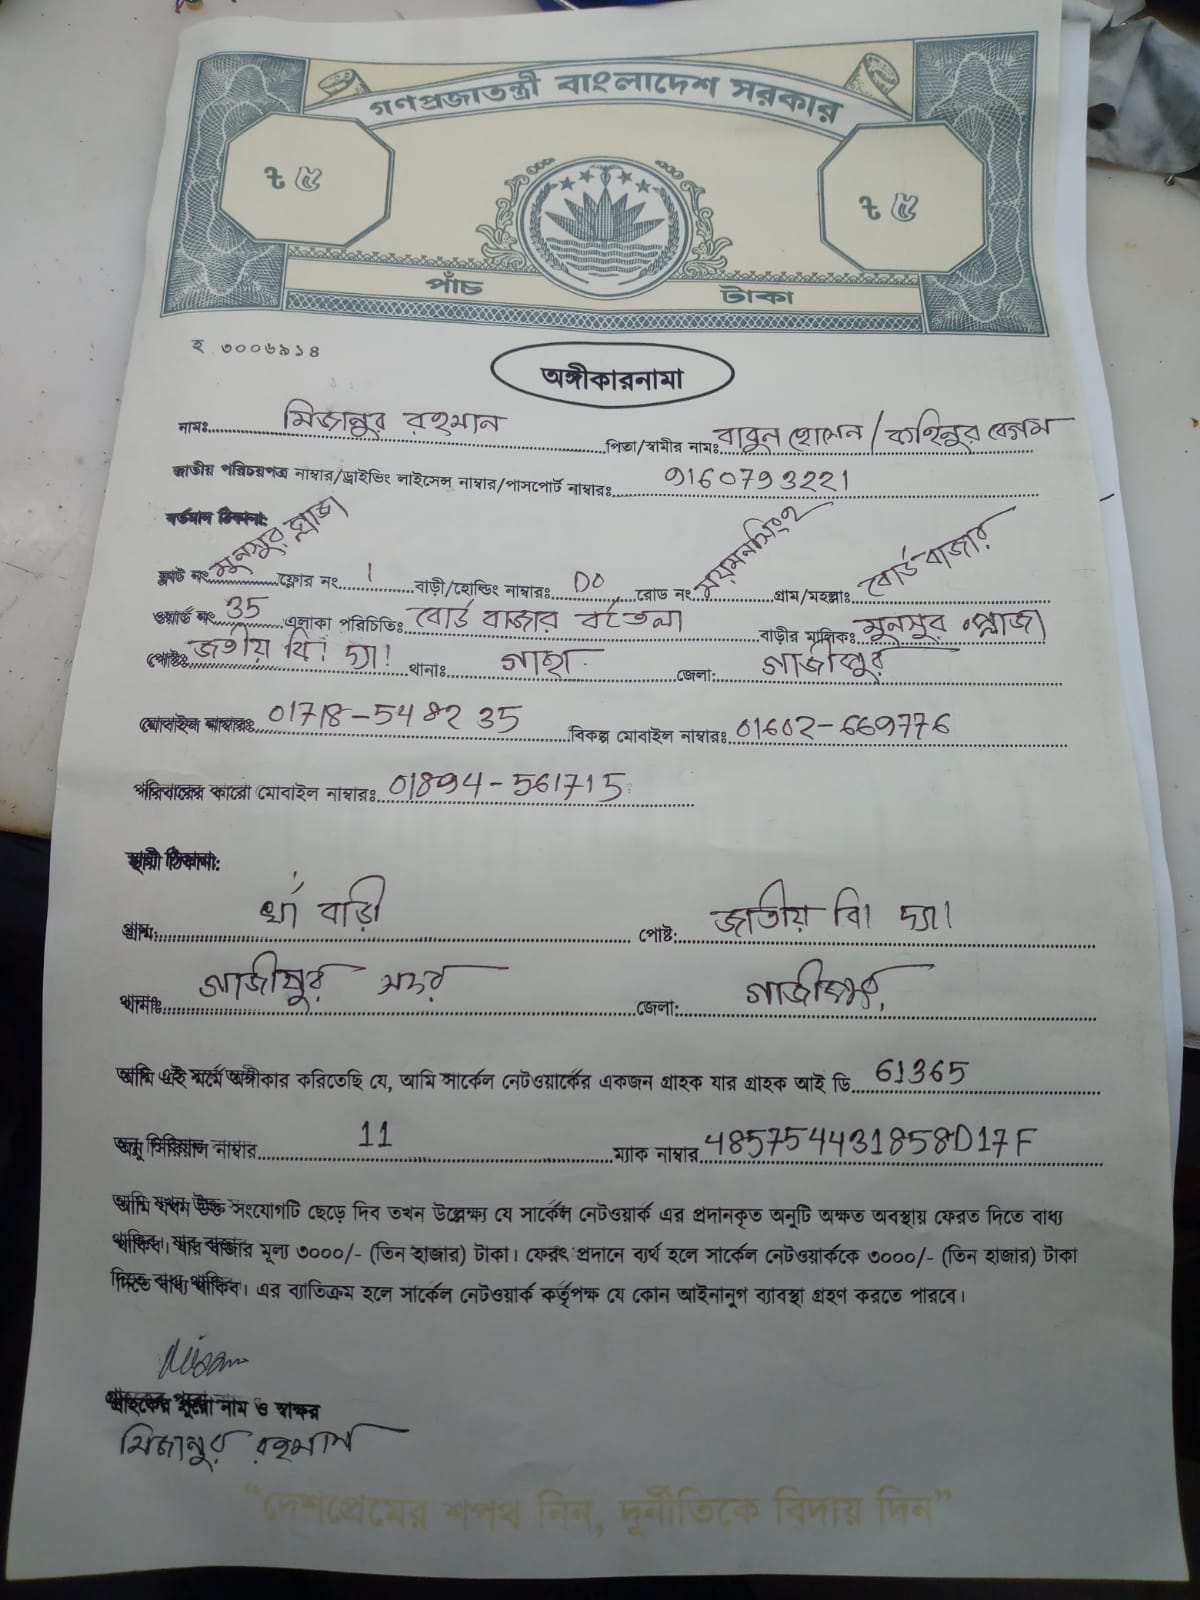 গণপ্রজাতন্ত্রী বাংলাদেশ সরকার
৳ ৫ ৳ ৫
পাঁচ টাকা
হ ৩০০৬৯১৪
অঙ্গীকারনামা
নামঃ মিজানুর রহমান পিতা/স্বামীর নামঃ বাবুল হোসেন / কহিনুর বেগম
জাতীয় পরিচয়পত্র নাম্বার/ড্রাইভিং লাইসেন্স নাম্বার/পাসপোর্ট নাম্বারঃ 9160793221
বর্তমান ঠিকানা:
ফ্লাট নং মুনসুর প্লাজা ফ্লোর নং 1 বাড়ী/হোল্ডিং নাম্বারঃ DO রোড নং ময়মনসিংহ গ্রাম/মহল্লাঃ বোর্ড বাজার
ওয়ার্ড নং 35 এলাকা পরিচিতিঃ বোর্ড বাজার বটতলা বাড়ীর মালিকঃ মুনসুর প্লাজা
পোষ্টঃ জতীয় বি। দ্যা। থানাঃ গাছা জেলা: গাজীপুর
মোবাইল নাম্বারঃ 01718-548235 বিকল্প মোবাইল নাম্বারঃ 01602-669776
পরিবারের কারো মোবাইল নাম্বারঃ 01894-561715
স্থায়ী ঠিকানা:
গ্রাম: খাঁ বাড়ী পোষ্ট: জাতীয় বি। দ্যা।
থানাঃ গাজীপুর সদর জেলা: গাজীপুর
আমি এই মর্মে অঙ্গীকার করিতেছি যে, আমি সার্কেল নেটওয়ার্কের একজন গ্রাহক যার গ্রাহক আই ডি 61365
অনু সিরিয়াল নাম্বার 11 ম্যাক নাম্বার 485754431858D17F
আমি যখন উক্ত সংযোগটি ছেড়ে দিব তখন উল্লেক্ষ্য যে সার্কেল নেটওয়ার্ক এর প্রদানকৃত অনুটি অক্ষত অবস্থায় ফেরত দিতে বাধ্য
থাকিব। যার বাজার মূল্য ৩০০০/- (তিন হাজার) টাকা। ফেরৎ প্রদানে ব্যর্থ হলে সার্কেল নেটওয়ার্ককে ৩০০০/- (তিন হাজার) টাকা
দিতে বাধ্য থাকিব। এর ব্যাতিক্রম হলে সার্কেল নেটওয়ার্ক কর্তৃপক্ষ যে কোন আইনানুগ ব্যাবস্থা গ্রহণ করতে পারবে।
গ্রাহকের পুরো নাম ও স্বাক্ষর
মিজানুর রহমান
“দেশপ্রেমের শপথ নিন, দুর্নীতিকে বিদায় দিন”